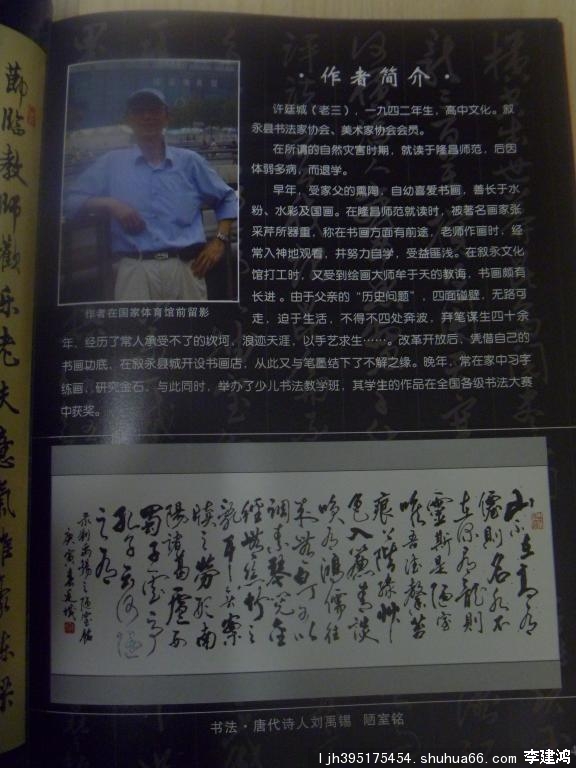 ·作者简介·
许廷城（老三），一九四二年生，高中文化。叙
永县书法家协会、美术家协会会员。
在所谓的自然灾害时期，就读于隆昌师范，后因
体弱多病，而退学。
早年，受家父的熏陶，自幼喜爱书画，善长于水
粉、水彩及国画。在隆昌师范就读时，被著名画家张
采芹所器重，称在书画方面有前途，老师作画时，经
常入神地观看，并努力自学，受益匪浅。在叙永文化
馆打工时，又受到绘画大师牟于天的教诲，书画颇有
长进。由于父亲的“历史问题”，四面碰壁，无路可
走，迫于生活，不得不四处奔波，弃笔谋生四十余
年，经历了常人承受不了的坎坷，浪迹天涯，以手艺求生……。改革开放后，凭借自己的
书画功底，在叙永县城开设书画店，从此又与笔墨结下了不解之缘。晚年，常在家中习字
练画，研究金石，与此同时，举办了少儿书法教学班，其学生的作品在全国各级书法大赛
中获奖。
作者在国家体育馆前留影
山不在高有
仙则名水不
在深有龙则
灵斯是陋室
唯吾德馨苔
痕上阶绿草
色入帘青谈
笑有鸿儒往
来无白丁可以
调素琴阅金
经无丝竹之
乱耳无案
牍之劳形南
阳诸葛庐西
蜀子云亭
孔子云何陋
之有
录刘禹锡之陋室铭
庚寅
书法·唐代诗人刘禹锡 陋室铭
ljh395175454.shuhua66.com 李建鸿